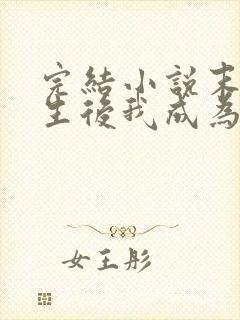 完結小說末
生後我成為
女王彤